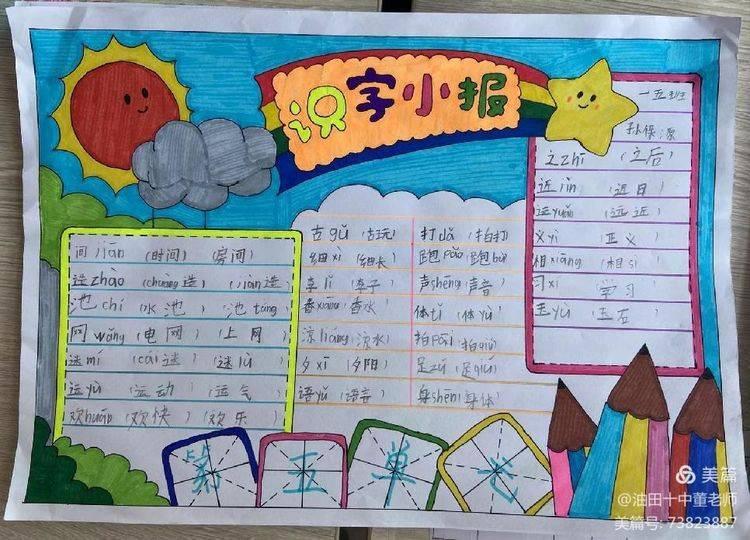 识字小报
一五班
孙保源
之zhī (之后)
近jìn (近日)
远yuǎn (远近)
义yì (正义)
相xiāng (相sì)
习xí (学习)
玉yù (玉石)
间jiān (时间) (房间)
造zhào (chuang造) (jiàn造)
池chí (水池) (池táng)
网wǎng (电网) (上网)
迷mí (cāi迷) (迷lù)
运yù (运动) (运气)
欢huān (欢快) (欢乐)
古gǔ (古玩)
细xì (细长)
李lǐ (李子)
香xiāng (香水)
凉liáng (凉水)
夕xī (夕阳)
语yǔ (语言)
打dǎ (拍打)
跑pǎo (跑bù)
声shēng (声音)
体tǐ (体yù)
拍pāi (拍qiú)
足zú (足qiú)
身shēn (身体)
第五单元
美篇
@油田十中董老师
美篇号: 73823887